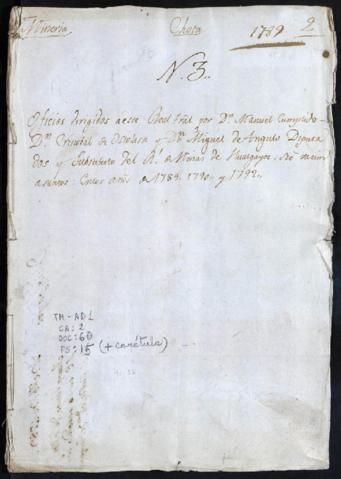 Mineria, Chota 1789 2
N. 3.
Oficios dirigidos a este Real Tral por Dn. Manuel Cumplido
Dn. Cristobal de Ostolasa y Dn. Miguel de Angulo Diputa
dos y Substituto del Rl. de Minas de Hualgayoc. de varios
asuntos: Entre años de 1789. 1790. y 1792.
TM-AD1
CA: 2
DOC: 60
FS: 15 (+ carátula)